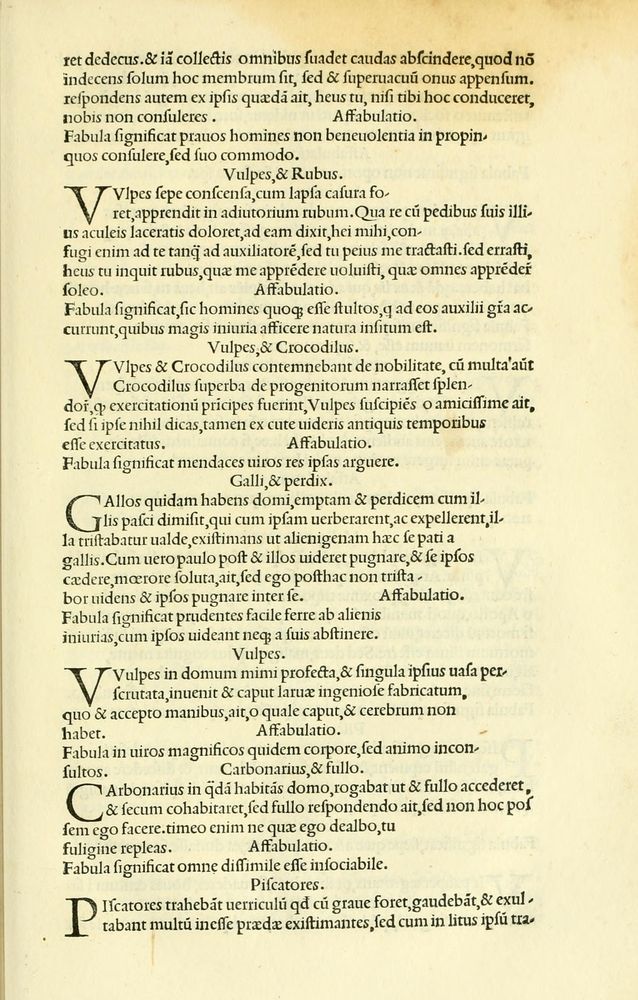 ret dedecus.& iā collectis omnibus suadet caudas abscindere,quod nō
indecens solum hoc membrum sit, sed & superuacuū onus appensum.
respondens autem ex ipsis quædā ait, heus tu, nisi tibi hoc conduceret,
nobis non consuleres . Affabulatio.
Fabula significat prauos homines non beneuolentia in propin-
quos consulere,sed suo commodo.
Vulpes,& Rubus.
VVlpes sepe conscensa,cum lapsa casura fo-
ret,apprendit in adiutorium rubum.Qua re cū pedibus suis illi-
us aculeis laceratis doloret,ad eam dixit,hei mihi,con-
fugi enim ad te tanq̄ ad auxiliatorē,sed tu peius me tractasti.sed errasti,
heus tu inquit rubus,quæ me apprēdere uoluisti, quæ omnes apprēder
soleo. Affabulatio.
Fabula significat,sic homines quoq; esse stultos,q ad eos auxilii gr̄a ac-
currunt,quibus magis iniuria afficere natura insitum est.
Vulpes,& Crocodilus.
VVlpes & Crocodilus contemnebant de nobilitate, cū multa aūt
Crocodilus superba de progenitorum narrasset splen-
dor̄,ꝙ exercitationū pricipes fuerint,Vulpes suscipiēs o amicissime ait,
sed si ipse nihil dicas,tamen ex cute uideris antiquis temporibus
esse exercitatus. Affabulatio.
Fabula significat mendaces uiros res ipsas arguere.
Galli,& perdix.
GAllos quidam habens domi,emptam & perdicem cum il-
lis pasci dimisit,qui cum ipsam uerberarent,ac expellerent,il-
la tristabatur ualde,existimans ut alienigenam hæc se pati a
gallis.Cum uero paulo post & illos uideret pugnare,& se ipsos
cædere,mœrore soluta,ait,sed ego posthac non trista -
bor uidens & ipsos pugnare inter se. Affabulatio.
Fabula significat prudentes facile ferre ab alienis
iniurias,cum ipsos uideant neq; a suis abstinere.
Vulpes.
VVulpes in domum mimi profecta,& singula ipsius uasa per-
scrutata,inuenit & caput laruæ ingeniose fabricatum,
quo & accepto manibus,ait,o quale caput,& cerebrum non
habet. Affabulatio.
Fabula in uiros magnificos quidem corpore,sed animo incon-
sultos. Carbonarius,& fullo.
CArbonarius in q̄dā habitās domo,rogabat ut & fullo accederet,
& secum cohabitaret,sed fullo respondendo ait,sed non hoc pos
sem ego facere.timeo enim ne quæ ego dealbo,tu
fuligine repleas. Affabulatio.
Fabula significat omne dissimile esse insociabile.
Piscatores.
PIscatores trahebāt uerriculū qd̄ cū graue foret,gaudebāt,& exul-
tabant multū inesse prædæ existimantes,sed cum in litus ipsū tra-